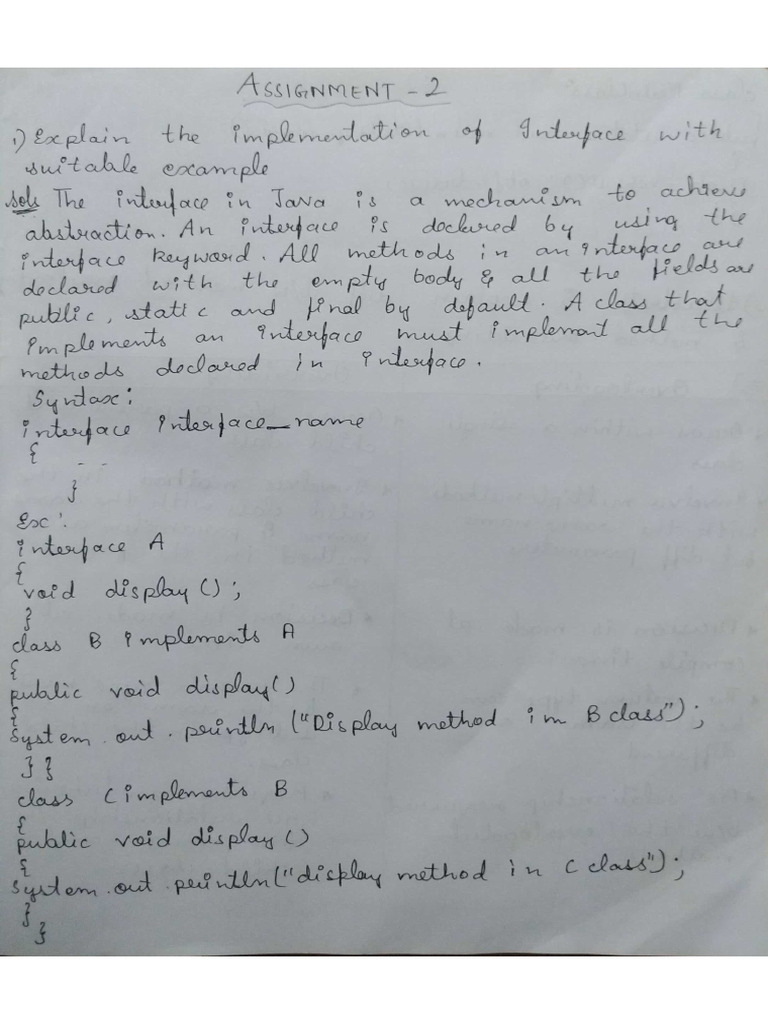 ASSIGNMENT - 2
1) Explain the implementation of Interface with
suitable example
Sol: The interface in Java is a mechanism to achieve
abstraction. An interface is declared by using the
interface keyword. All methods in an interface are
declared with the empty body & all the fields are
public, static and final by default. A class that
implements an interface must implement all the
methods declared in interface.
Syntax:
interface interface_name
{
- -
}
Ex:
interface A
{
void display();
}
class B implements A
{
public void display()
{
System.out.println ("Display method im B class");
} }
class C implements B
{
public void display()
{
System.out.println("display method in C class");
}
}